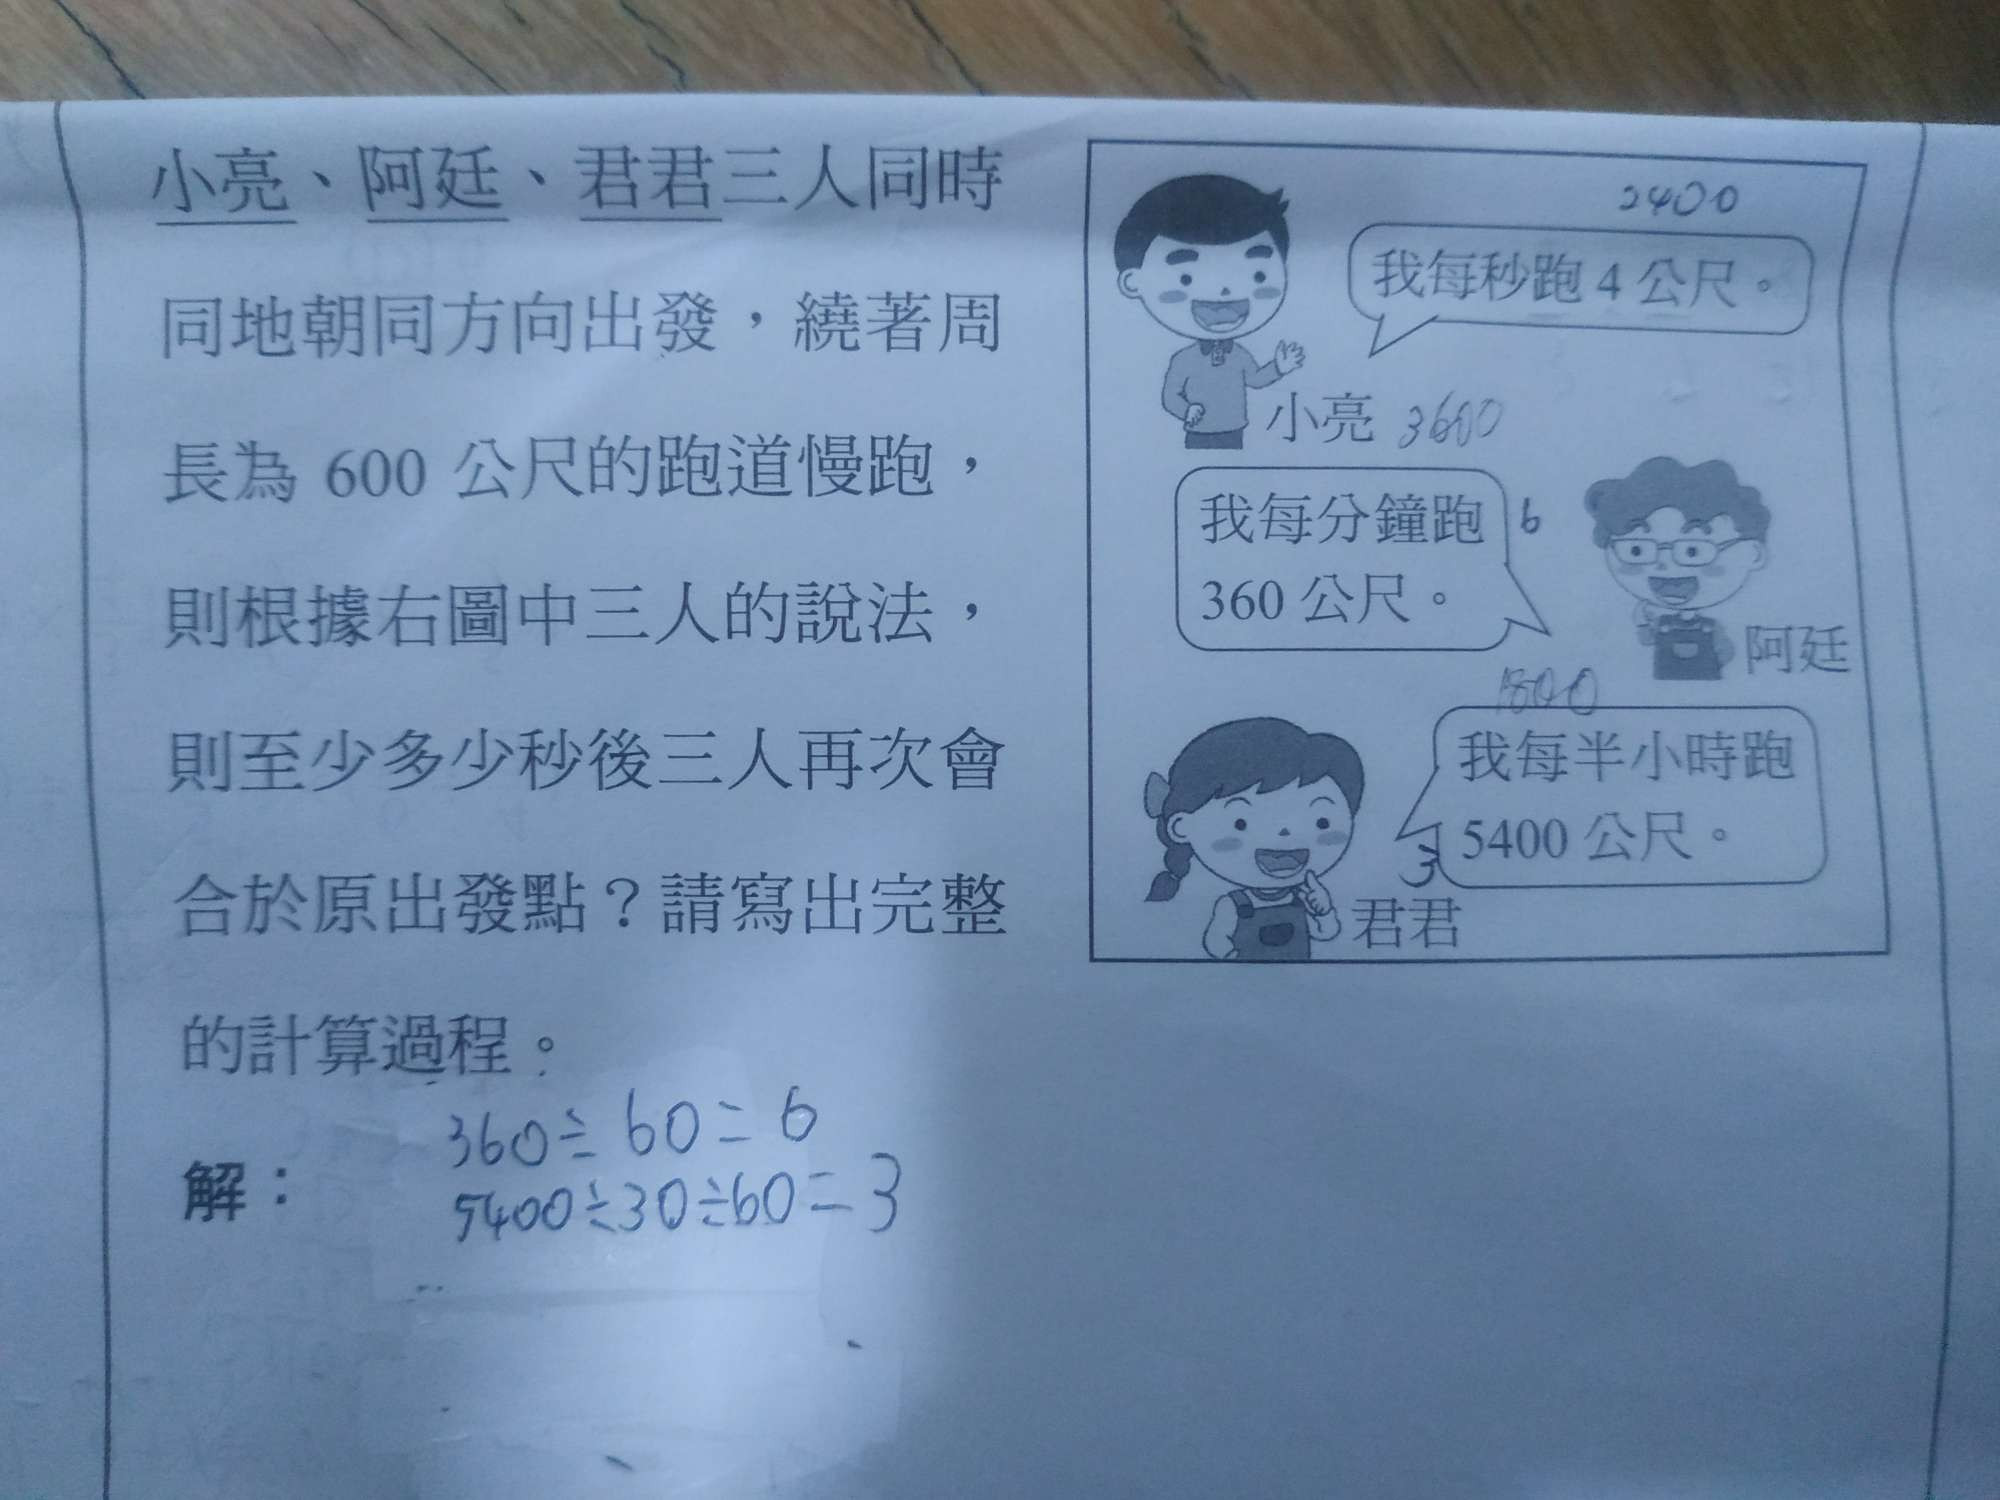 小亮、阿廷、君君三人同時
同地朝同方向出發，繞著周
長為 600 公尺的跑道慢跑，
則根據右圖中三人的說法，
則至少多少秒後三人再次會
合於原出發點？請寫出完整
的計算過程。
2400
我每秒跑 4 公尺。
小亮 3600
我每分鐘跑 6
360 公尺。
阿廷
1800
我每半小時跑
5400 公尺。
3
君君
解：
360÷60=6
5400÷30÷60=3